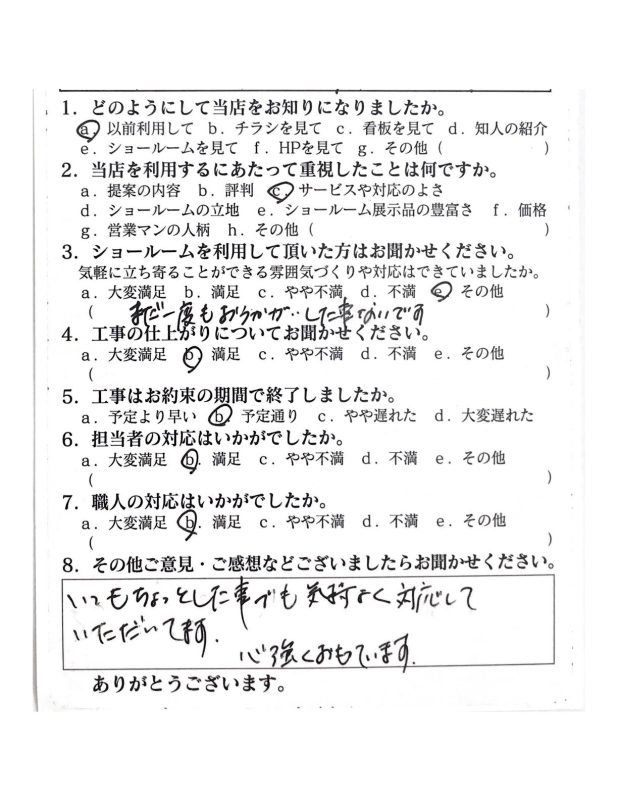 1. どのようにして当店をお知りになりましたか。
a. 以前利用して b. チラシを見て c. 看板を見て d. 知人の紹介
e. ショールームを見て f. HPを見て g. その他 ( )
2. 当店を利用するにあたって重視したことは何ですか。
a. 提案の内容 b. 評判 c. サービスや対応のよさ
d. ショールームの立地 e. ショールーム展示品の豊富さ f. 価格
g. 営業マンの人柄 h. その他 ( )
3. ショールームを利用して頂いた方はお聞かせください。
気軽に立ち寄ることができる雰囲気づくりや対応はできていましたか。
a. 大変満足 b. 満足 c. やや不満 d. 不満 e. その他
( まだ一度もおうかがいした事ないです )
4. 工事の仕上がりについてお聞かせください。
a. 大変満足 b. 満足 c. やや不満 d. 不満 e. その他
( )
5. 工事はお約束の期間で終了しましたか。
a. 予定より早い b. 予定通り c. やや遅れた d. 大変遅れた
6. 担当者の対応はいかがでしたか。
a. 大変満足 b. 満足 c. やや不満 d. 不満 e. その他
( )
7. 職人の対応はいかがでしたか。
a. 大変満足 b. 満足 c. やや不満 d. 不満 e. その他
( )
8. その他ご意見・ご感想などございましたらお聞かせください。
いつもちょっとした事でも気持よく対応して
いただいてます.
心強くおもています.
ありがとうございます。